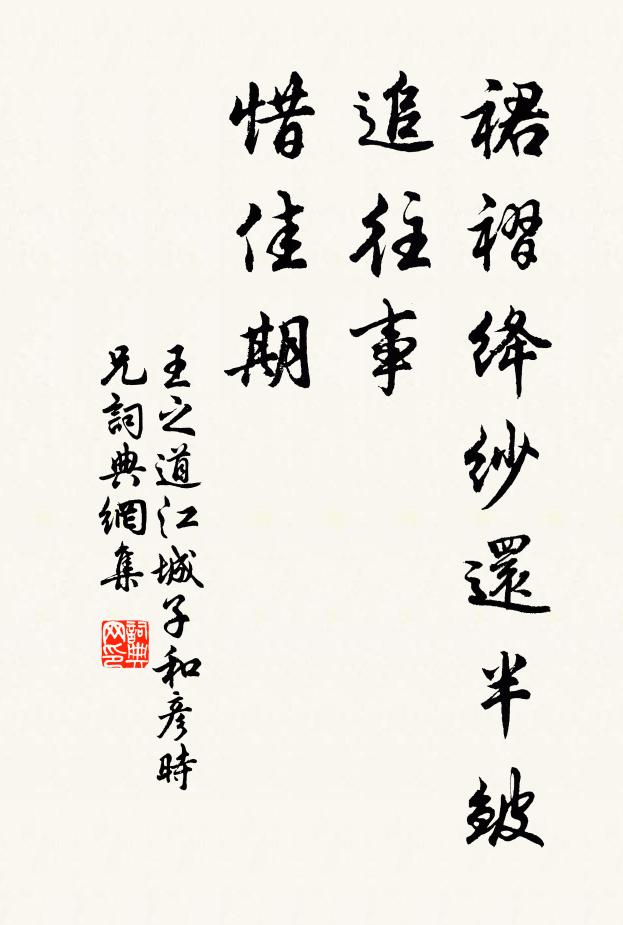 裙褶绛紗還半皺
追往事
惜佳期
王之道江城子和彥時
兄詞典網集
詞典
网印